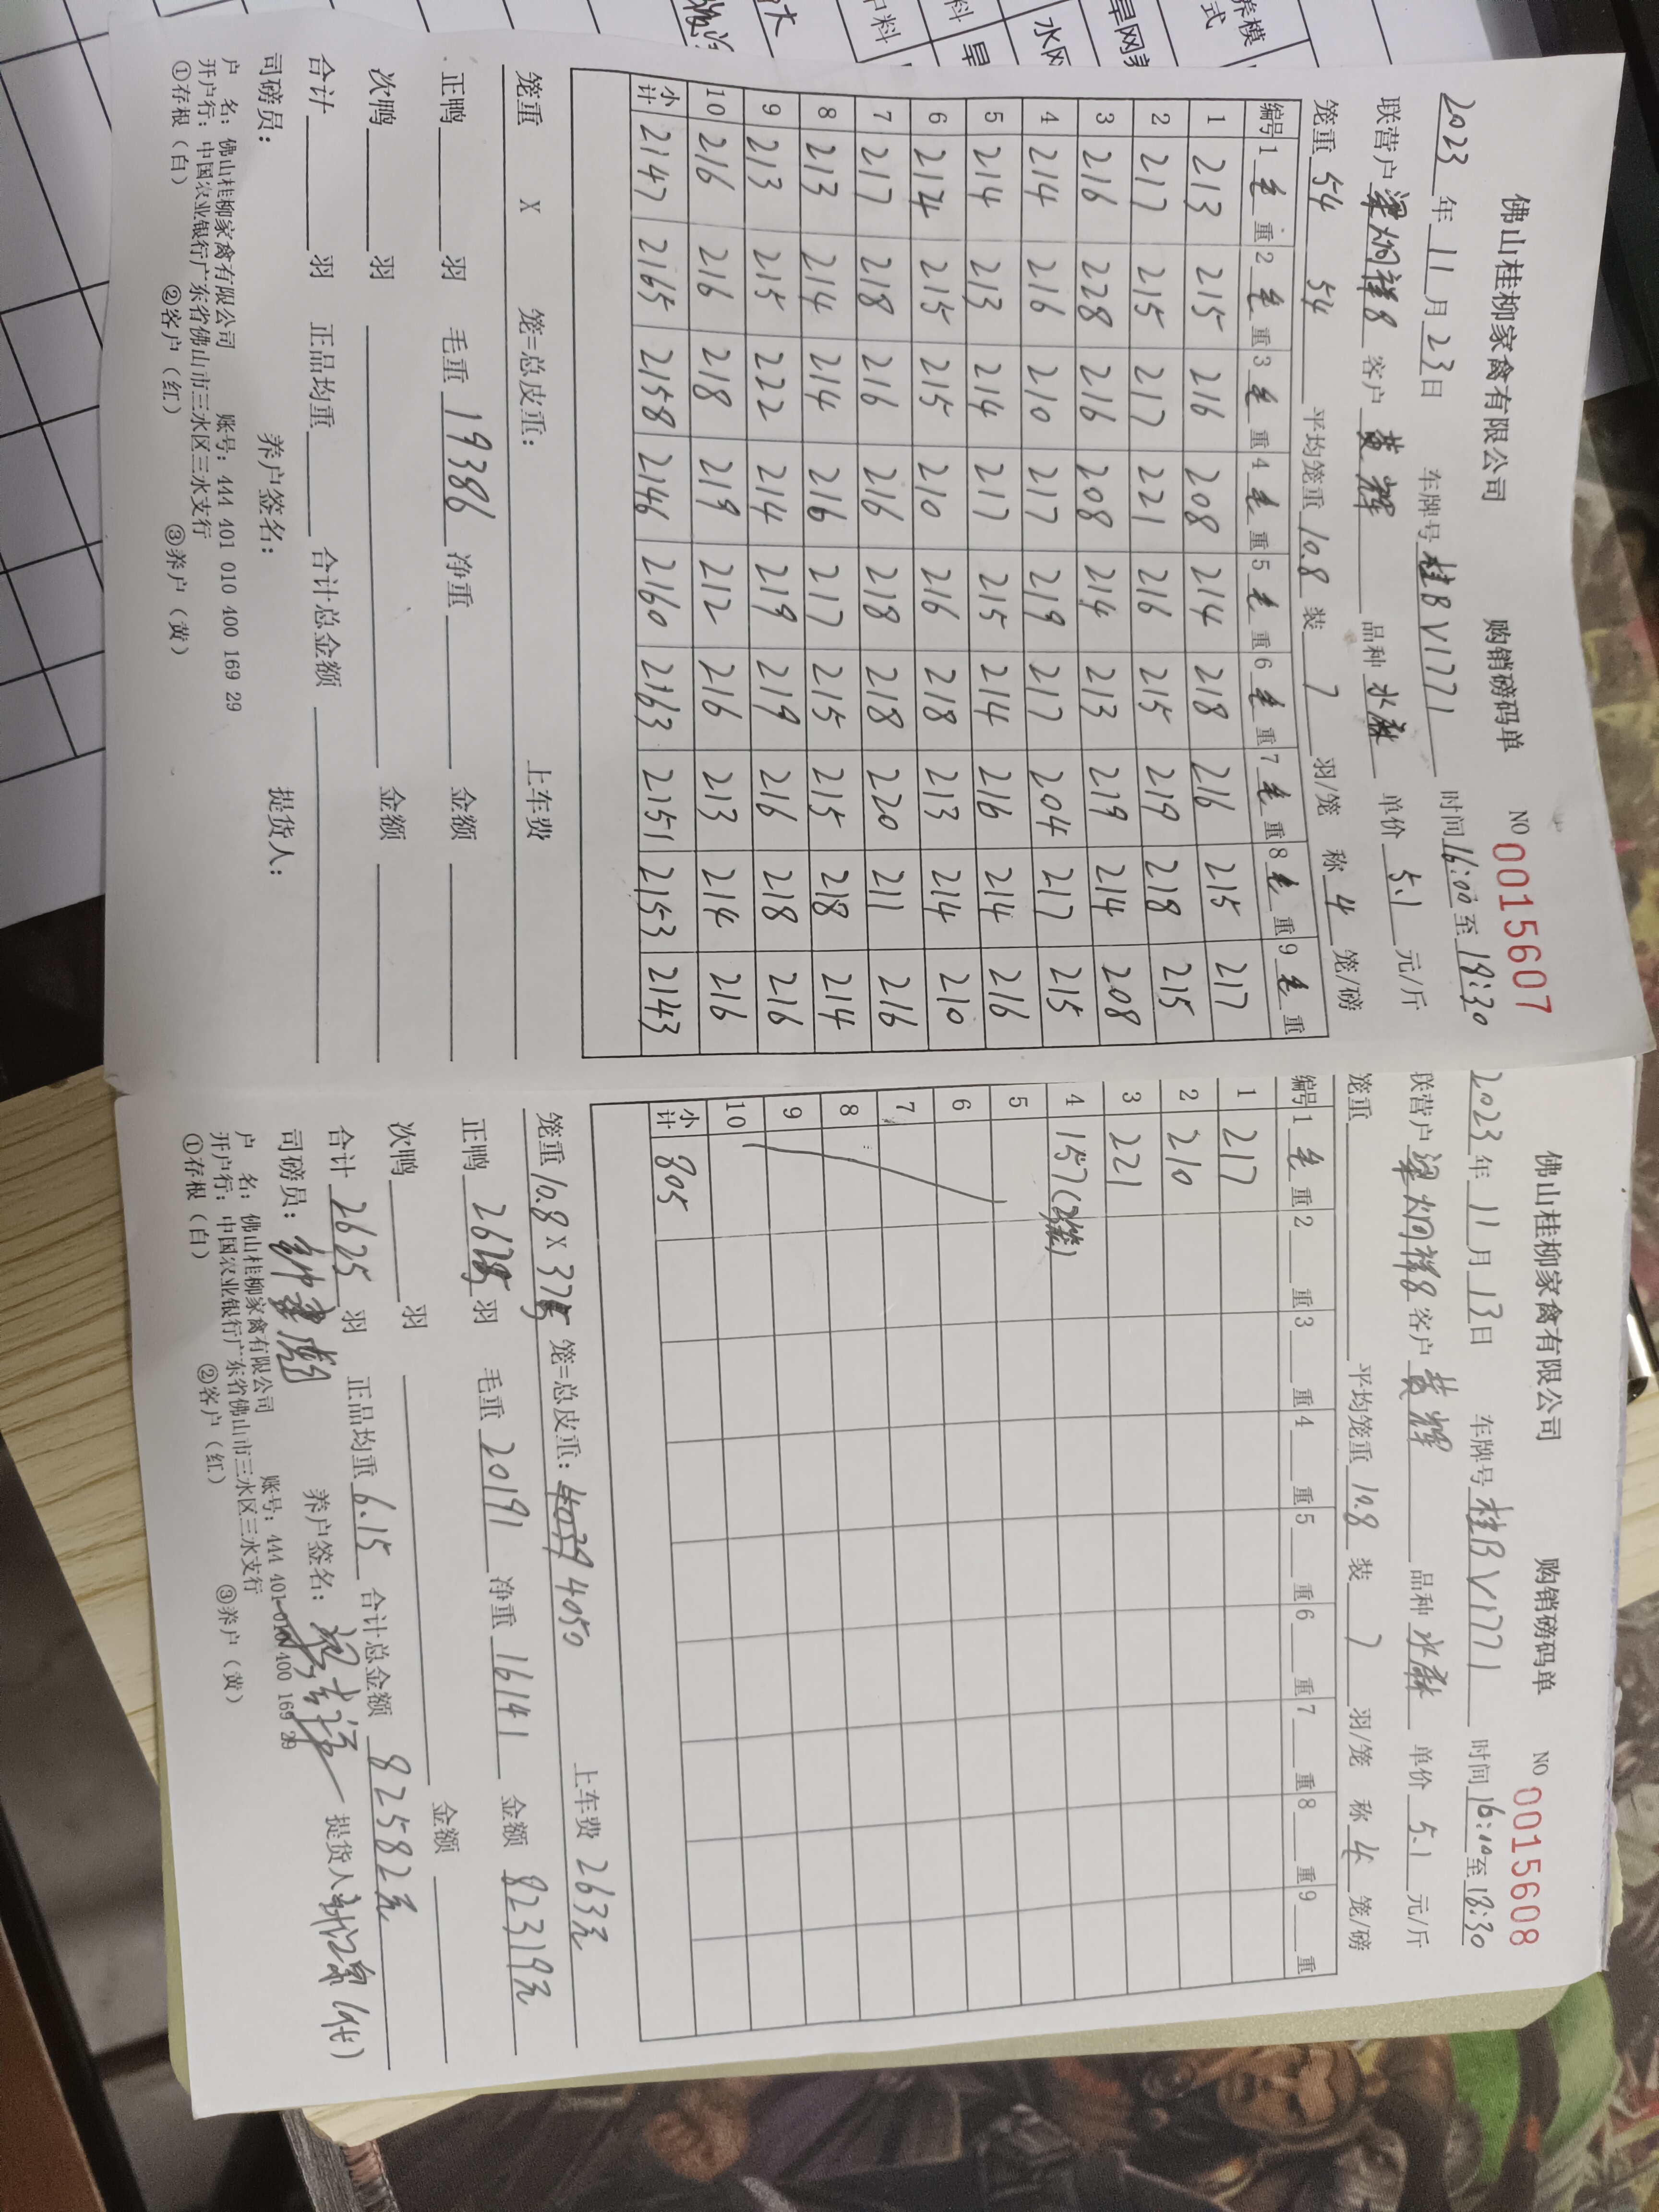 佛山桂柳家禽有限公司 购销磅码单 NO 0015607
2023年11月23日 车牌号桂BV1771 时间16:00至18:30
联营户梁炳祥8 客户黄辉 品种水 单价5.1元/斤
笼重54 54 平均笼重10.8装7羽/笼 称4笼/磅
编号 1毛重 2毛重 3毛重 4毛重 5毛重 6毛重 7毛重 8毛重 9毛重
1 213 215 216 208 214 218 216 215 217
2 217 215 217 221 216 215 219 218 215
3 216 228 216 208 214 213 219 214 208
4 214 216 210 217 219 217 204 217 215
5 214 213 214 217 215 214 216 214 216
6 214 215 215 210 216 218 213 214 210
7 217 218 216 216 218 218 220 211 216
8 213 214 214 216 217 215 215 218 214
9 213 215 222 214 219 219 216 218 216
10 216 216 218 219 212 216 213 214 216
小计 2147 2165 2158 2146 2160 2163 2151 2153 2143
笼重 X 笼=总皮重: 上车费
正鸭 羽 毛重19386 净重 金额
次鸭 羽 金额
合计 羽 正品均重 合计总金额
司磅员: 养户签名: 提货人:
户 名: 佛山桂柳家禽有限公司 账号: 444 401 010 400 169 29
开户行: 中国农业银行广东省佛山市三水区三水支行
①存根(白) ②客户(红) ③养户(黄)
佛山桂柳家禽有限公司 购销磅码单 NO 0015608
2023年11月13日 车牌号桂BV1771 时间16:10至18:30
联营户梁炳祥8 客户黄辉 品种水 单价5.1元/斤
笼重 平均笼重10.8装7羽/笼 称4笼/磅
编号 1毛重 2 重 3 重 4 重 5 重 6 重 7 重 8 重 9 重
1 217
2 210
3 221
4 157(笼)
5
6
7
8
9
10
小计 805
笼重10.8X375笼=总皮重:4079 4050 上车费263元
正鸭2625羽 毛重20191 净重16141 金额82319元
次鸭 羽 金额
合计2625羽 正品均重6.15 合计总金额82582元
司磅员: 养户签名: 提货人 (代)
户 名: 佛山桂柳家禽有限公司 账号: 444 401 010 400 169 29
开户行: 中国农业银行广东省佛山市三水区三水支行
①存根(白) ②客户(红) ③养户(黄)
养模式
旱网
水网
旱
料
中料
大